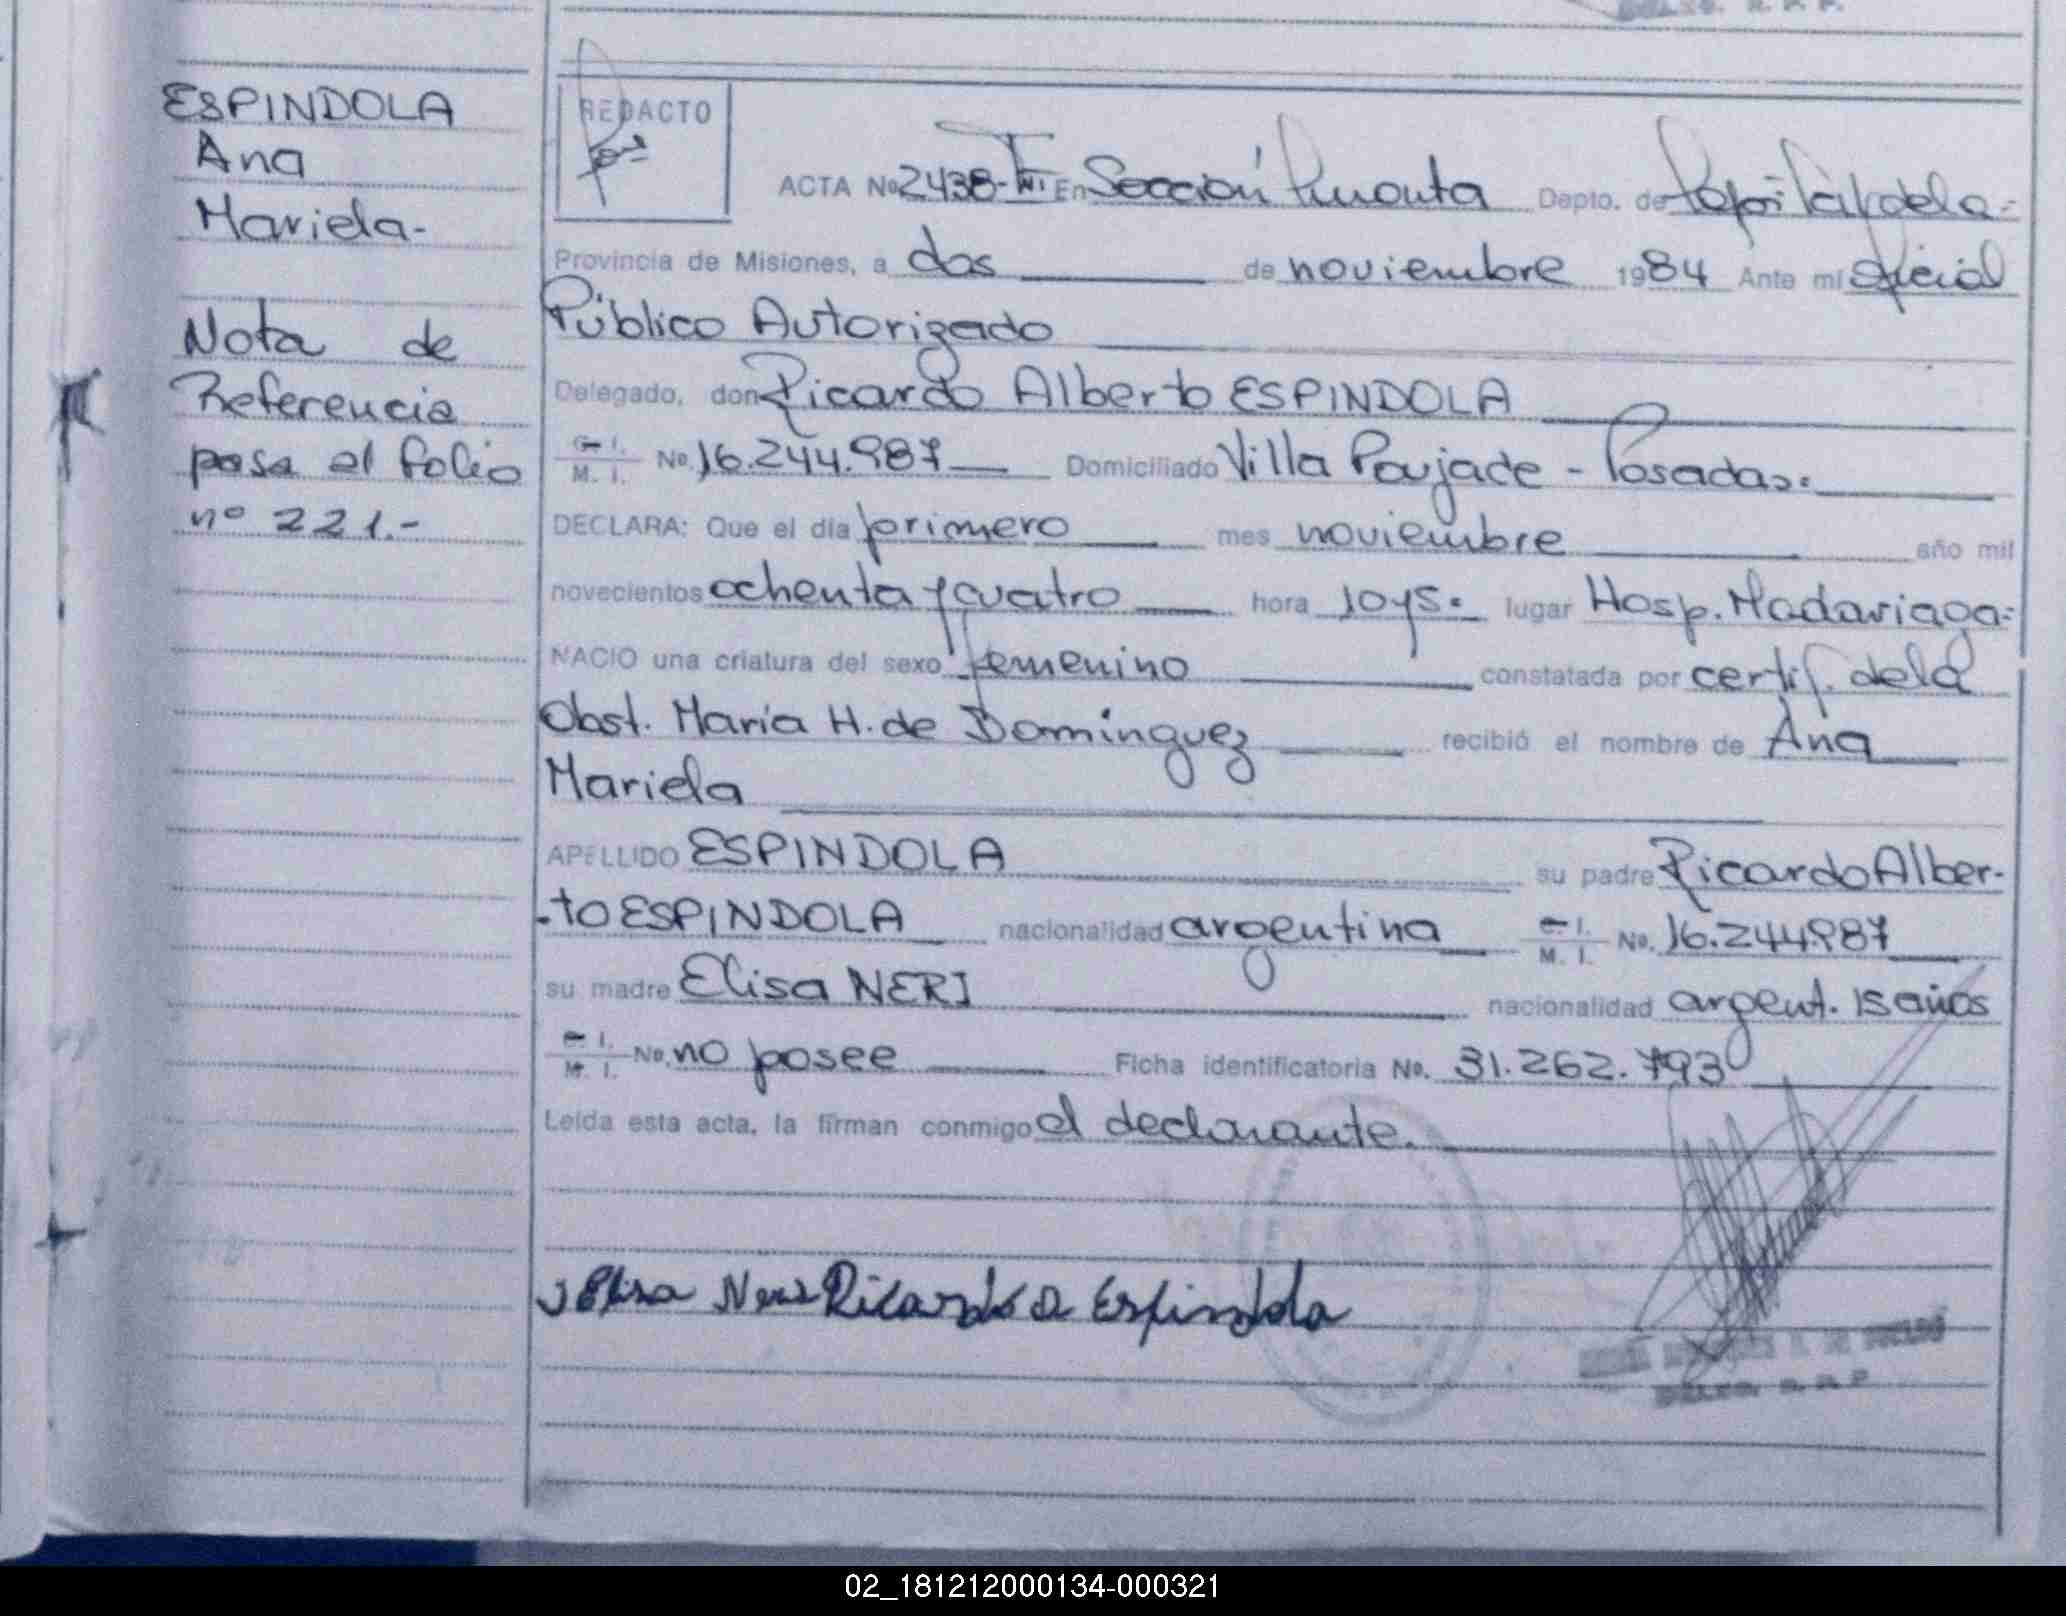 ESPINDOLA
Ana
Mariela-
Nota de
Referencia
pasa al folio
nº 221.-
REDACTO
ACTA No 2438- En Sección Dapto. de
Provincia de Misiones, a dos de noviembre 1984 Ante mí oficial
Público Autorizado
Delegado, don Ricardo Alberto ESPINDOLA
C. I. M. I. No. 16.244.987 Domiciliado Villa Poujade - Posadas.
DECLARA: Que el día primero mes noviembre año mil
novecientos ochenta y cuatro hora 10y15. lugar Hosp. Madariaga.
NACIO una criatura del sexo femenino constatada por certif. de la
Obst. María H. de Dominguez recibió el nombre de Ana
Mariela
APELLIDO ESPINDOLA su padre Ricardo Alber-
-to ESPINDOLA nacionalidad argentina C. I. M. I. No. 16.244.987
su madre Elisa NERI nacionalidad argent. 15 años
C. I. M. I. No. no posee Ficha identificatoria No. 31.262.793
Leída esta acta, la firman conmigo el declarante.
Elisa Neris Ricardo A Espindola
02_181212000134-000321